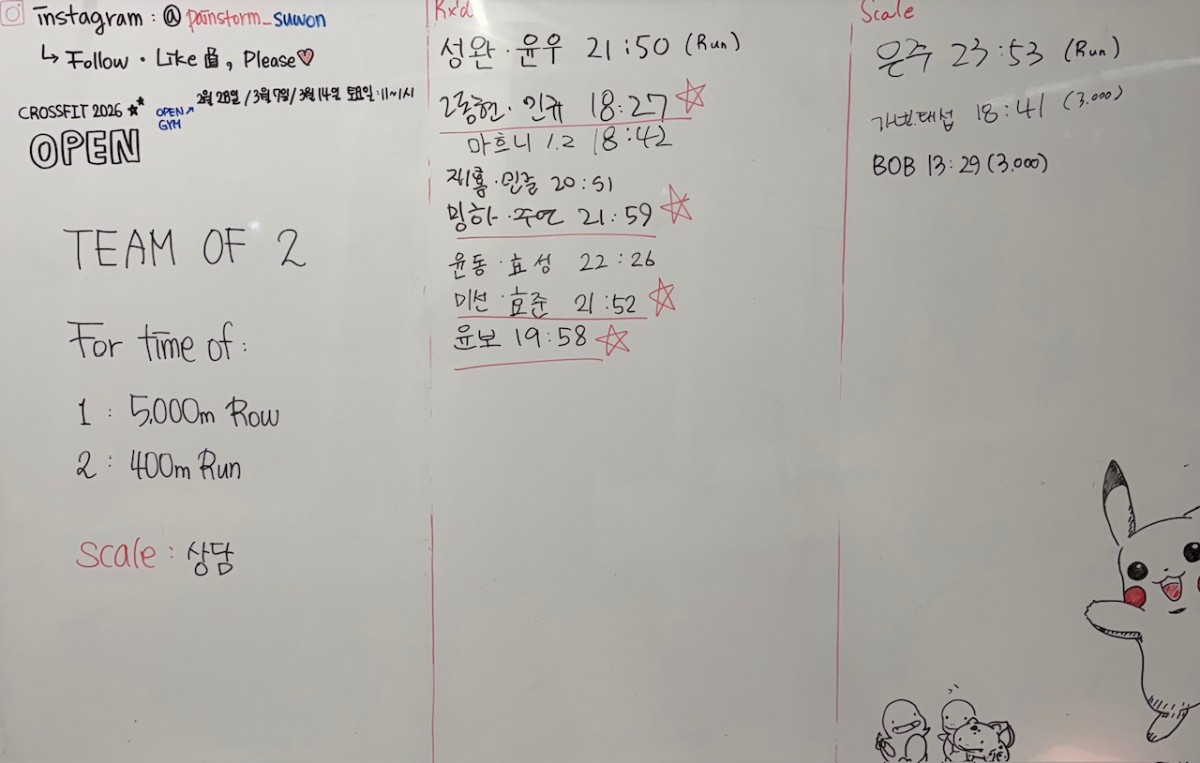 instagram : @ painstorm_suwon
↳ Follow · Like , Please♡
CROSSFIT 2026
OPEN
OPEN↗
GYM
2월 28일 / 3월 7일 / 3월 14일 토요일 : 11~1시
TEAM OF 2
For time of :
1 : 5,000m Row
2 : 400m Run
Scale : 상담
Rx'd
성완 · 윤우 21:50 (Run)
동현 · 인규 18:27
마흐니 1.2 18:42
재홍 · 민준 20:51
밍하 · 주연 21:59
윤동 · 효성 22:26
미선 · 효준 21:52
윤보 19:58
Scale
은주 23:53 (Run)
대섭 18:41 (3.000)
BOB 13:29 (3.000)